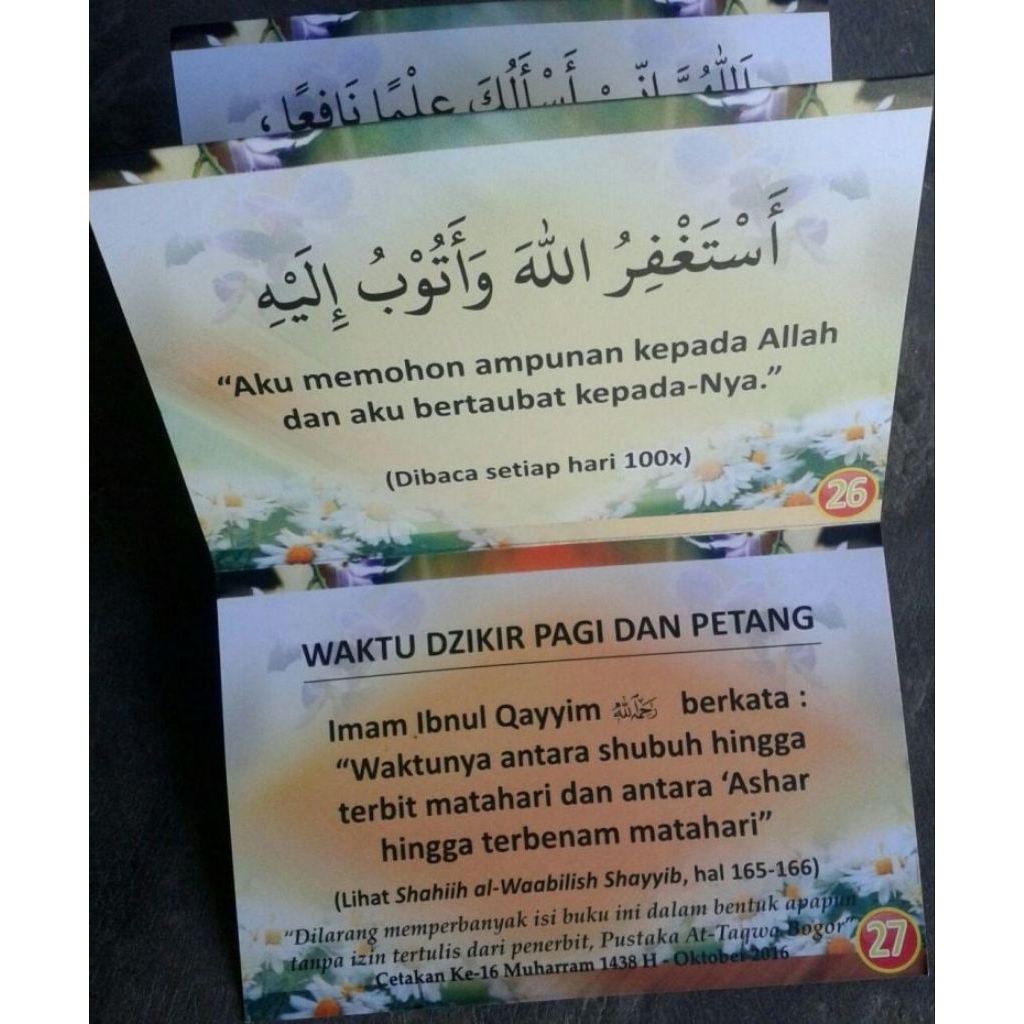 اَللّٰهُمَّ إِنِّيْ أَسْأَلُكَ عِلْمًا نَافِعًا ،
أَسْتَغْفِرُ اللّٰهَ وَأَتُوْبُ إِلَيْهِ
“Aku memohon ampunan kepada Allah
dan aku bertaubat kepada-Nya.”
(Dibaca setiap hari 100x)
26
WAKTU DZIKIR PAGI DAN PETANG
Imam Ibnul Qayyim رَحِمَهُ اللهُ berkata :
“Waktunya antara shubuh hingga
terbit matahari dan antara ‘Ashar
hingga terbenam matahari”
(Lihat Shahiih al-Waabilish Shayyib, hal 165-166)
“Dilarang memperbanyak isi buku ini dalam bentuk apapun
tanpa izin tertulis dari penerbit, Pustaka At-Taqwa Bogor”
Cetakan Ke-16 Muharram 1438 H - Oktober 2016
27